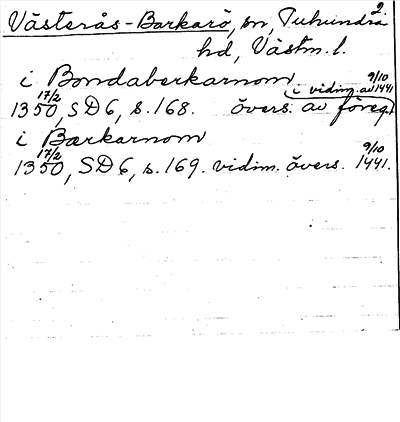 2.
Västerås-Barkarö, sn, Tuhundra
hd, Västm. l.
i Bondaberkarnom i vidim. av 9/10 1441
1350 17/2, SD 6, s. 168. övers. av föreg.
i Bærkarnom
1350 17/2, SD 6, s. 169. vidim. övers. 9/10 1441.